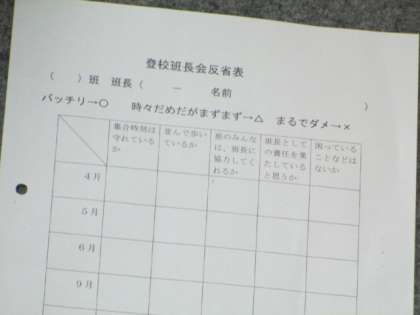 登校班長会反省表
（　　）班　班長（　　－　　名前　　　　　）
バッチリ→○　　時々だめだがまずまず→△　まるでダメ→×
集合時刻は
守れている
か
並んで歩い
ているか
班のみんな
は、班長に
協力してく
れるか
班長として
の責任を果
たしている
と思うか
困っている
ことなどは
ないか
4月
5月
6月
9月